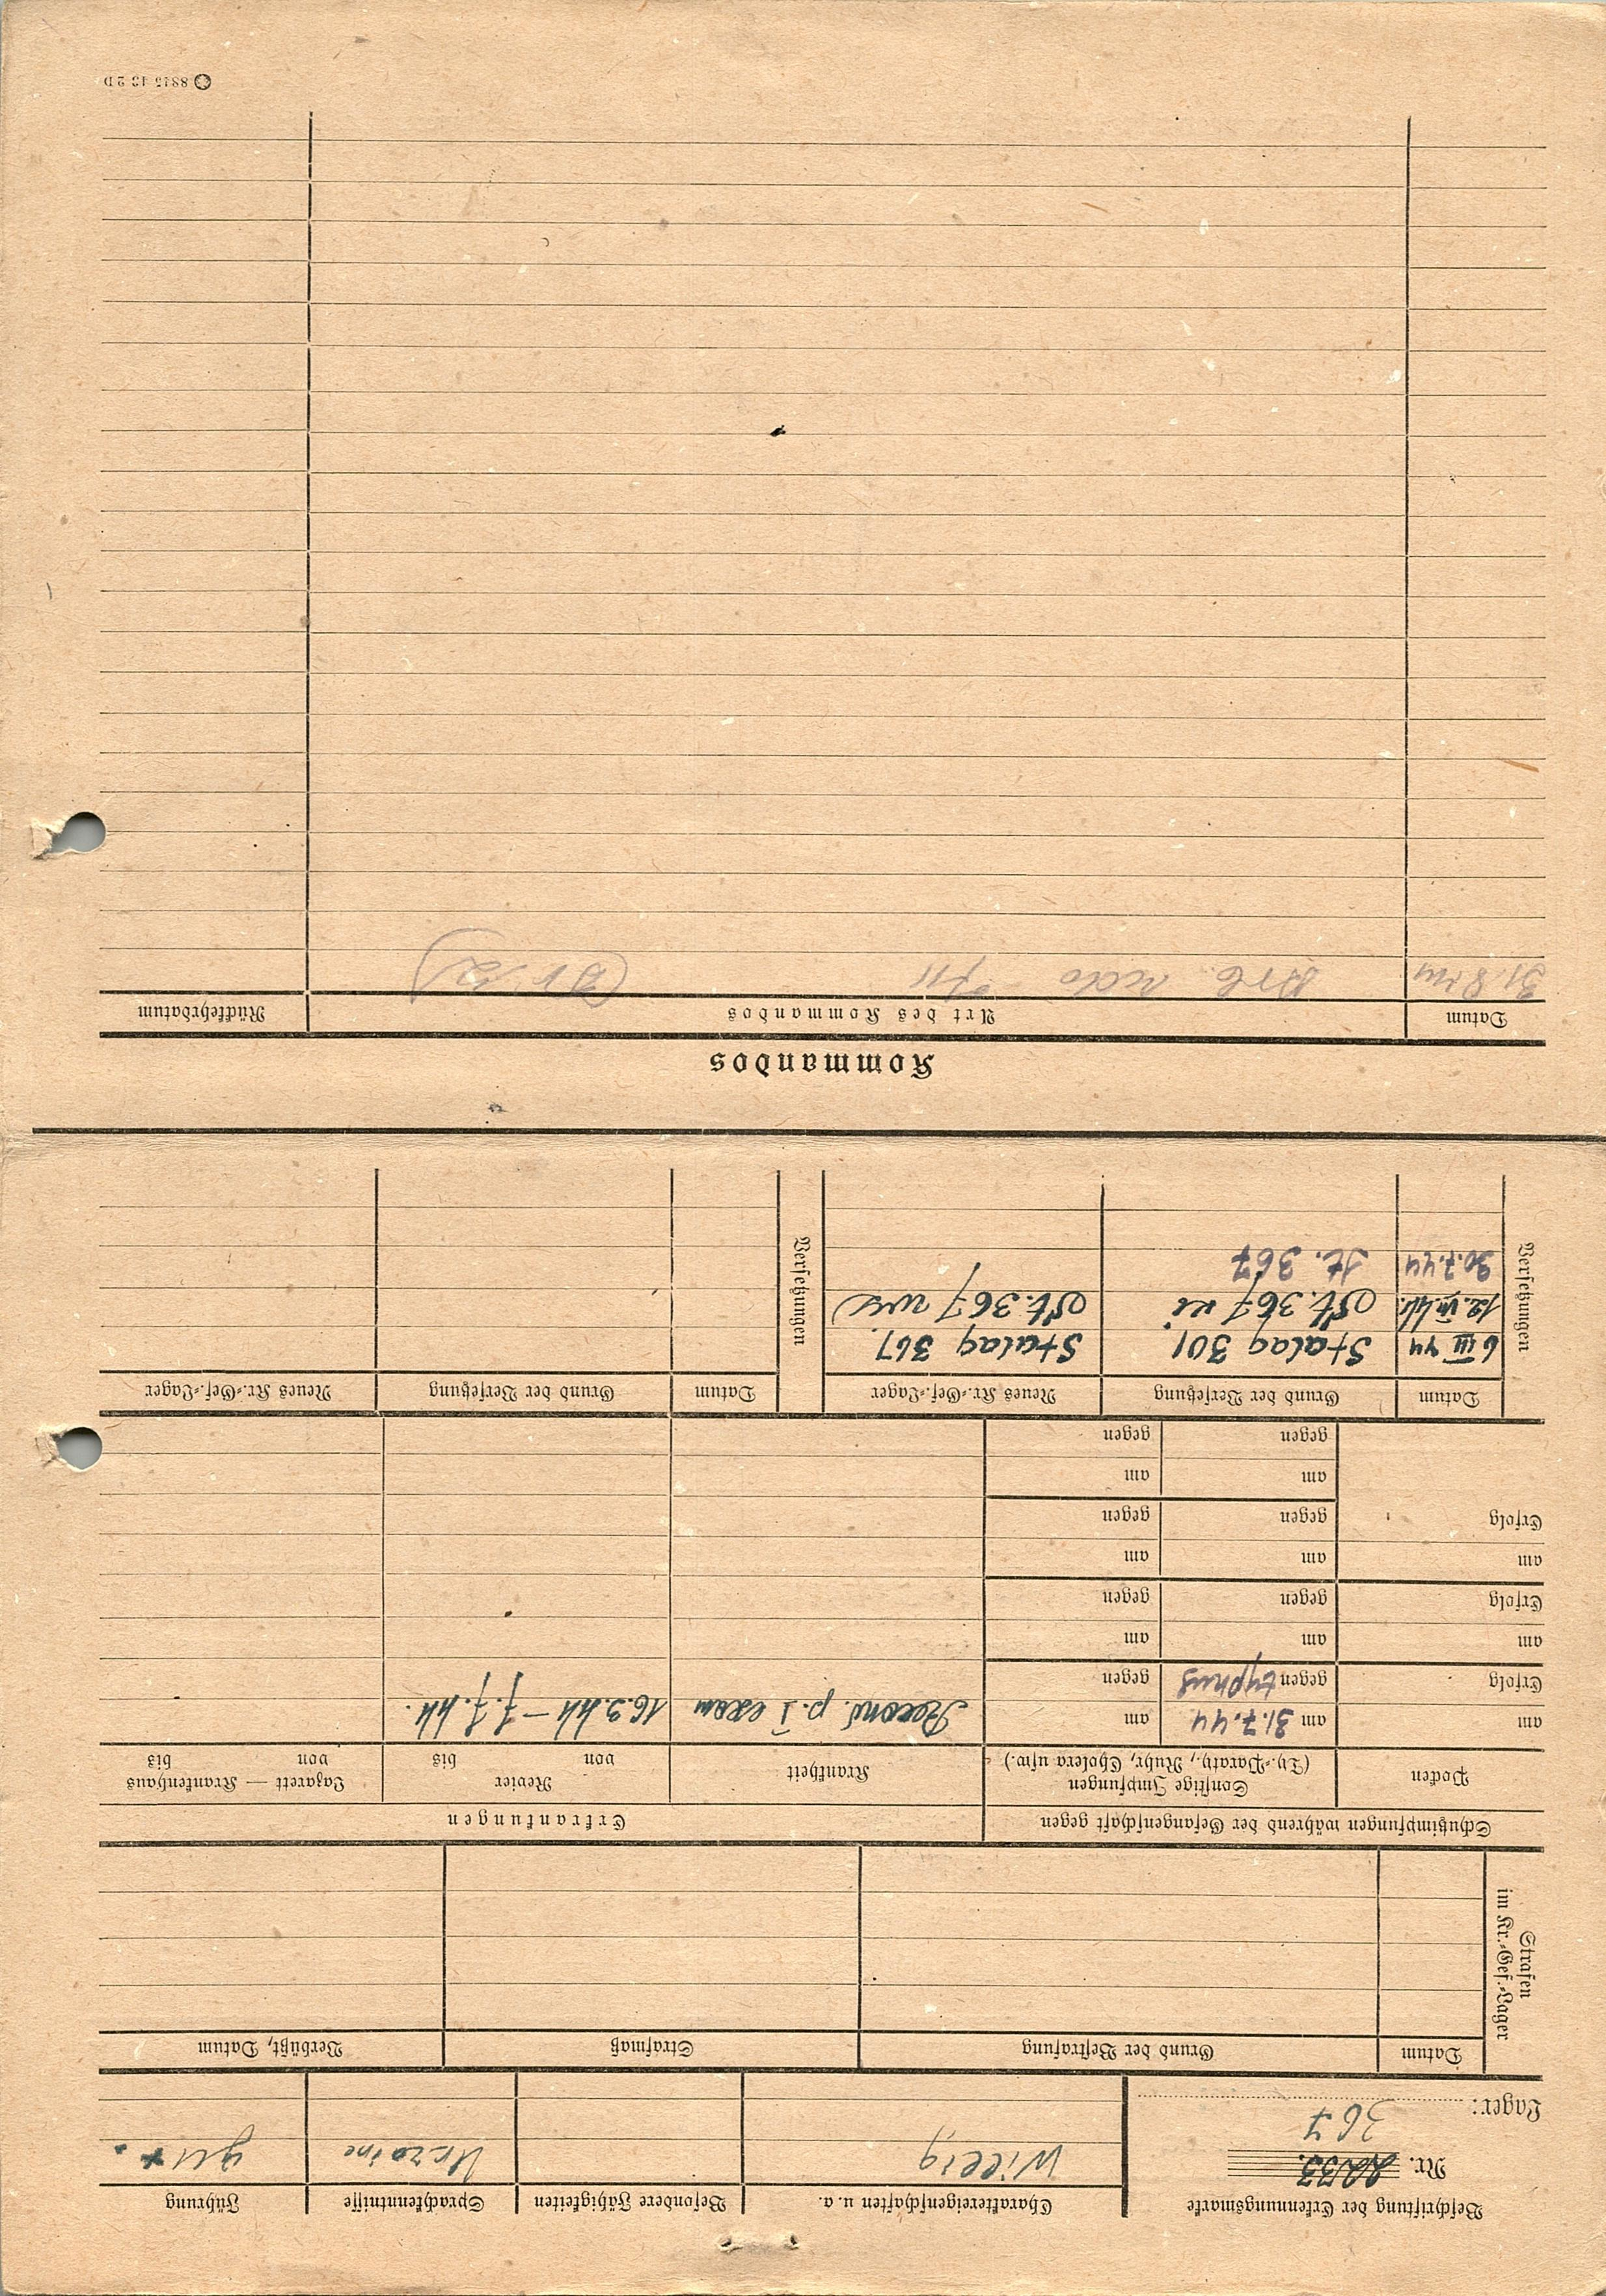 Beschriftung der Erkennungsmarke
Nr. 2233.
Lager: 367
Charaktereigenschaften u. a.
Willig
Besondere Fähigkeiten
Sprachkenntnisse
Ukraine
Führung
gut.
Strafen
im Kr.-Gef.-Lager
Datum
Grund der Bestrafung
Strafmaß
Verbüßt, Datum
Schutzimpfungen während der Gefangenschaft gegen
Erkrankungen
Pocken
Sonstige Impfungen
(Ty.-Paraty., Ruhr, Cholera usw.)
Krankheit
Revier
von bis
Lazarett — Krankenhaus
von bis
am
am 31.7.44
am
p. I exam
16.3.44 – 7.7.44.
Erfolg
gegen typhus
gegen
am
am
am
Erfolg
gegen
gegen
am
am
am
Erfolg
gegen
gegen
am
am
gegen
gegen
Versetzungen
Datum
Grund der Versetzung
Neues Kr.-Gef.-Lager
Versetzungen
Datum
Grund der Versetzung
Neues Kr.-Gef.-Lager
6 III 44
Stalag 301
Stalag 367.
12. VII. 44.
St. 367
St. 367
30.7.44
St. 367
Kommandos
Datum
Art des Kommandos
Rückkehrdatum
31.8.44
Arb
8845 43 2D